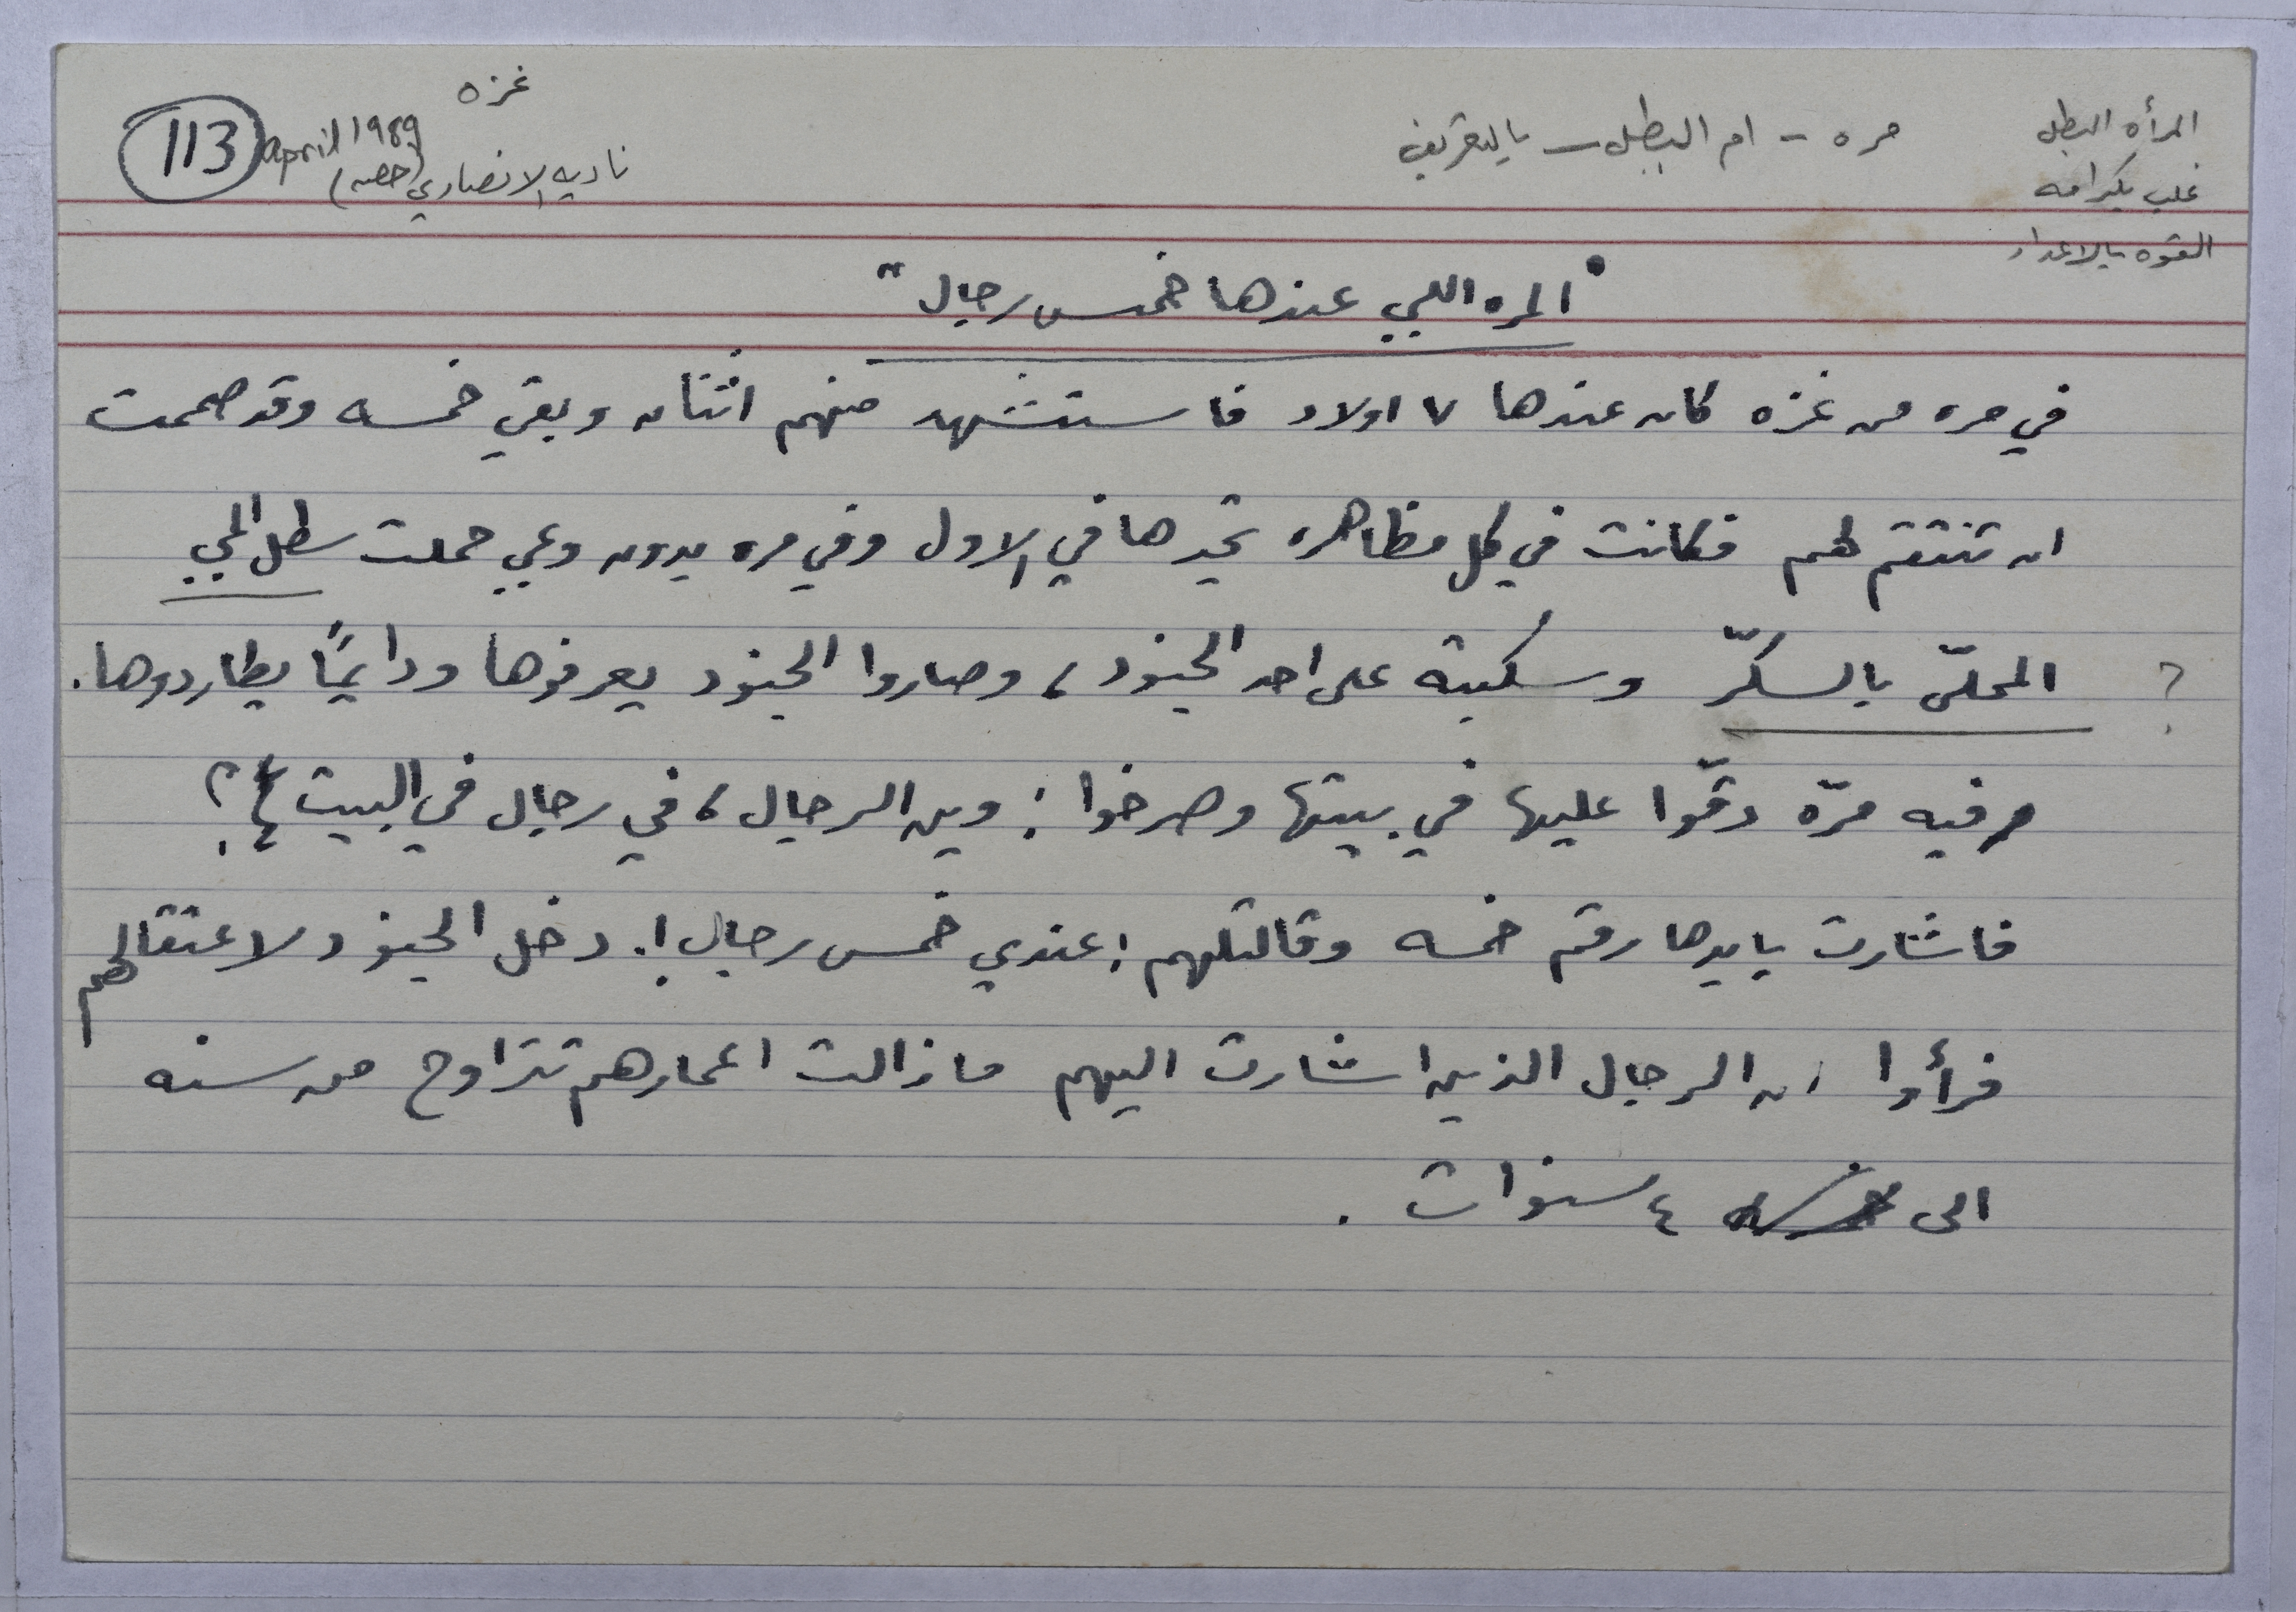 غزه
113 april 1989
ناديه الانصاري (حصه)
المرأه البطل
مره - ام البطل - بالتعريف
غلب بكرامه
القوه بالاعداد
"المره اللي عندها خمس رجال"
في مره من غزه كان عندها ٧ اولاد فاستشهد منهم اثنان وبقي خمسه وقد صممت
ان تنتقم لهم فكانت في كل مظاهره تجدها في الاول وفي مره بدون وعي حملت سطل المي
? المحلّى بالسكّر وسكبته على احد الجنود، وصاروا الجنود يعرفوها ودايمًا يطاردوها.
وفيه مرّه دقّوا عليها في بيتها وصرخوا: وين الرجال، في رجال في البيت؟
فاشارت بايدها رقم خمسه وقالتلهم: عندي خمس رجال!. دخل الجنود لاعتقالهم
فرأوا ان الرجال الذين اشارت اليهم ما زالت اعمارهم تتراوح من سنه
الى ٤ سنوات.